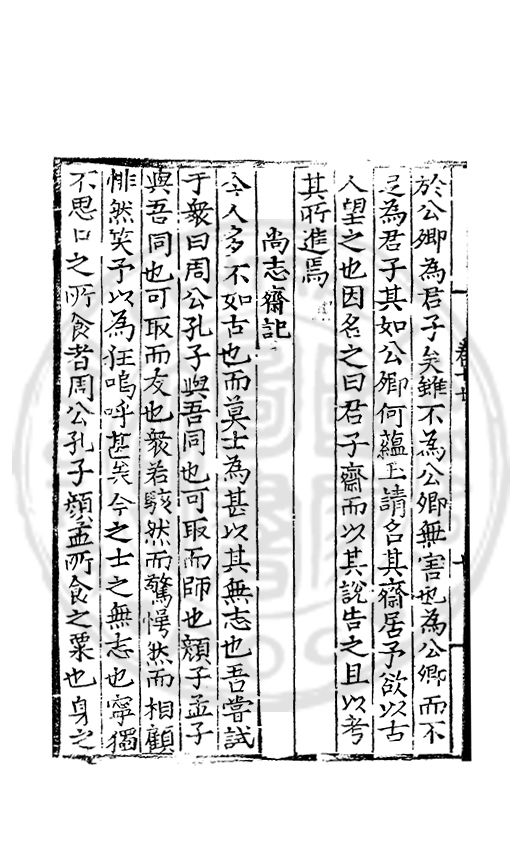 於公卿為君子矣雖不為公卿無害也為公卿而不
足為君子其如公卿何蘊玉請名其齋居予欲以古
人望之也因名之曰君子齋而以其說告之且以考
其所進焉
尚志齋記
今人多不如古也而莫士為甚以其無志也吾嘗試
于衆曰周公孔子與吾同也可取而師也顏子孟子
與吾同也可取而友也衆若駭然而驚愕然而相顧
悱然笑予以為狂嗚呼甚矣今之士之無志也寧獨
不思口之所食者周公孔子顏孟所食之粟也身之